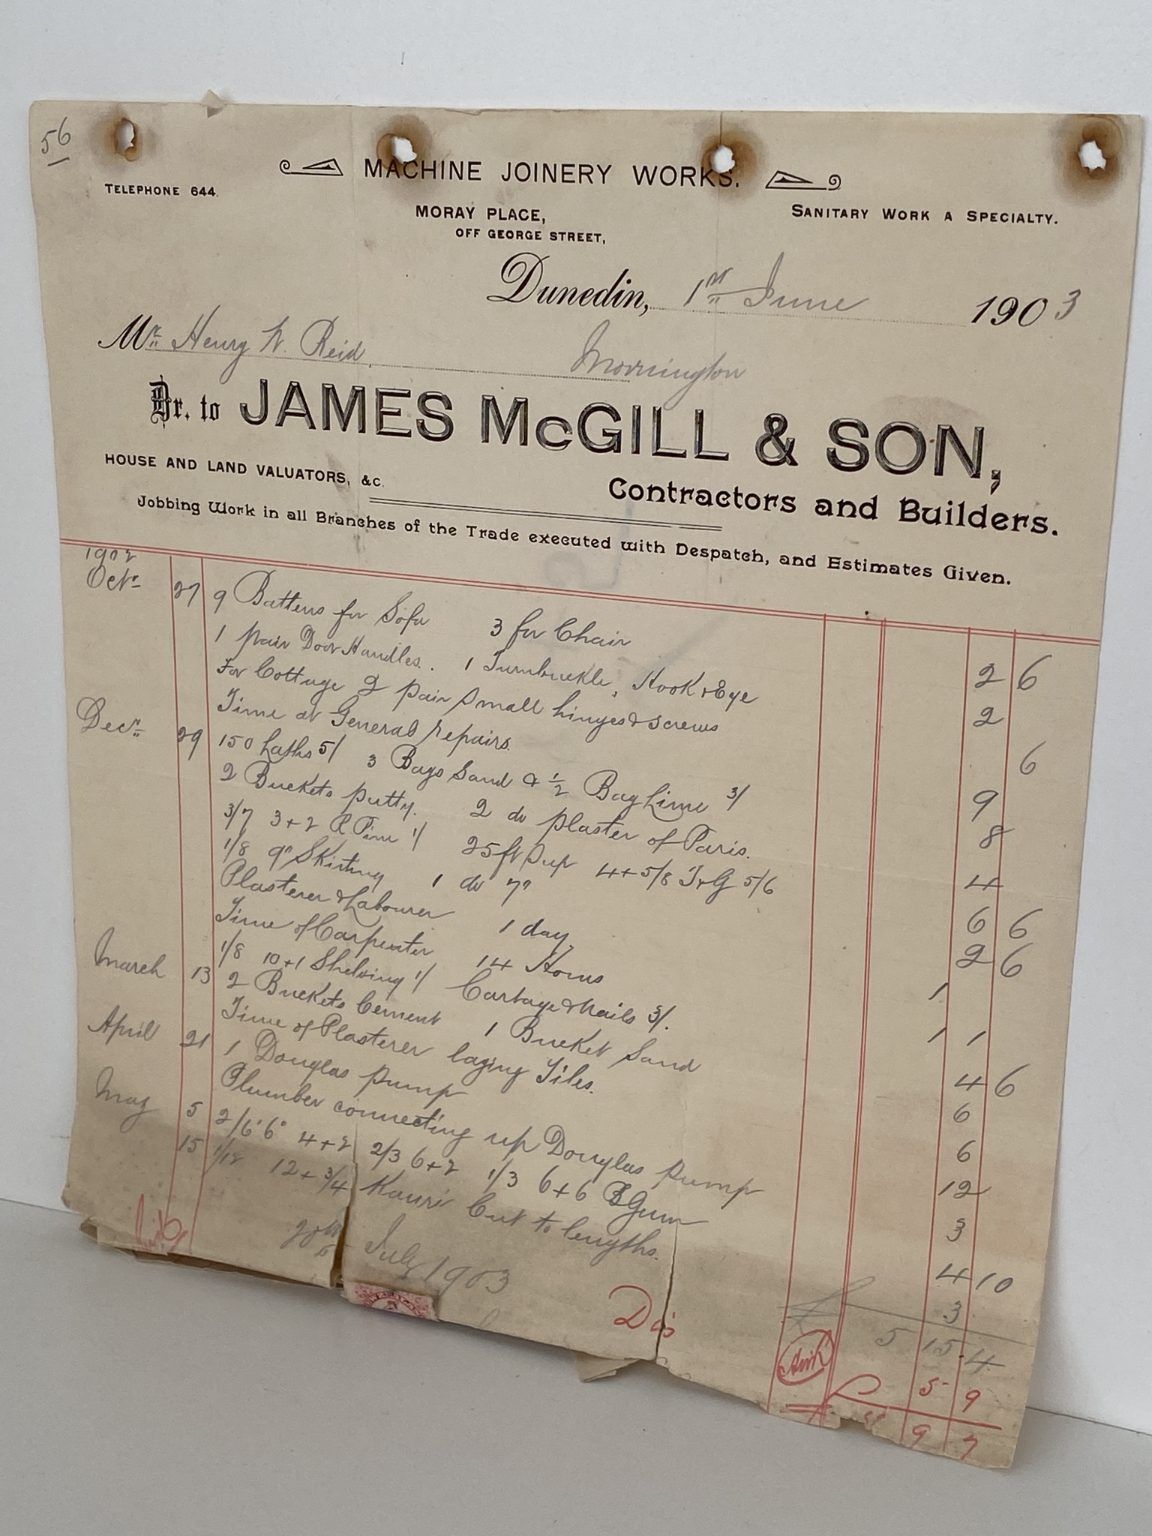 56
MACHINE JOINERY WORKS.
TELEPHONE 644.
MORAY PLACE,
OFF GEORGE STREET,
SANITARY WORK A SPECIALTY.
Dunedin, 1st June 1903
Mr. Henry W. Reid, Mornington
Dr. to JAMES McGILL & SON,
HOUSE AND LAND VALUATORS, &c.
Contractors and Builders.
Jobbing Work in all Branches of the Trade executed with Despatch, and Estimates Given.
1902
Octr 27 9 Battens for Sofa 3 for Chair 2 6
1 pair Door Handles. 1 Turnbuckle, Hook & Eye 2
For Cottage 2 pair small hinges & screws 6
Time at General repairs. 9
Decr 29 150 Laths 5/ 3 Bags Sand & 1/2 Bag Lime 3/ 8
2 Buckets putty. 2 do plaster of Paris. 4
3/7 3+2 R Pine 1/ 25ft Sup 4+5/8 T+G 5/6 6 6
1/8 9" Skirting 1 do 7" 2 6
Plasterer & Labourer 1 day 1
Time of Carpenter 14 Hours 1 1
March 13 1/8 10+1 Shelving 1/ Cartage & Nails 3/. 4 6
2 Buckets Cement 1 Bucket Sand 6
Time of Plasterer laying Tiles. 6
April 21 1 Douglas pump 12
Plumber connecting up Douglas pump 3
May 5 2/6'6" 4+2 2/3 6+2 1/3 6+6 Gum 4 10
15 1/12 12+3/4 Kauri Cut to lengths. 3
£ 5 15 4
20th July 1903
Dis 5 9
9 7